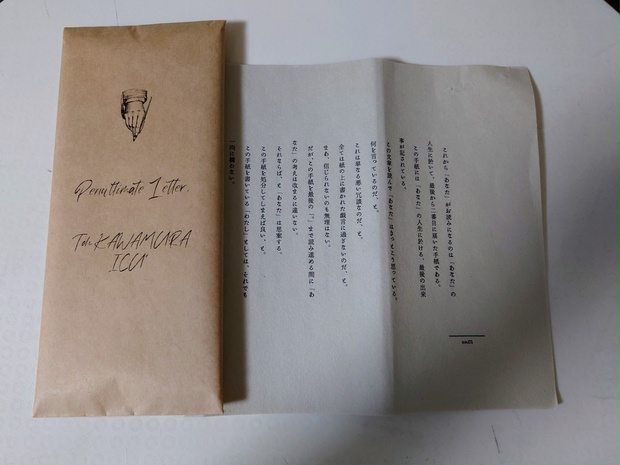 Penultimate Letter.
Toh. KAWAMURA
ICU
これから「あなた」がお読みになるのは「あなた」の
人生に於いて、最後から二番目に届いた手紙である。
この手紙には「あなた」の人生に於ける、最後の出来
事が記されている。
この文章を読んで「あなた」はきっとこう思っている。
何を言っているのだ、と。
これは単なる悪い冗談なのだ、と。
全ては紙の上に書かれた戯言に過ぎないのだ、と。
まあ、信じられないのも無理はない。
だが、この手紙を最後の「。」まで読み進める間に「あ
なた」の考えは改まるに違いない。
それならば、と「あなた」は思案する。
この手紙を処分してしまえば良い、と。
この手紙を書いている「わたし」としては、それでも
一向に構わない。